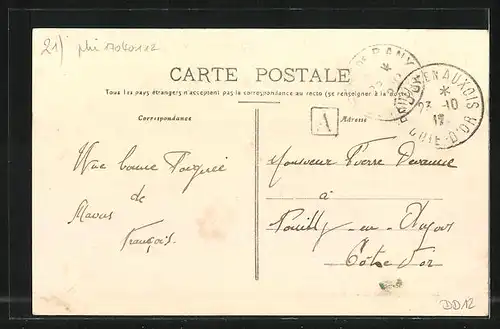 21)
CARTE POSTALE
Tous les pays étrangers n'acceptent pas la correspondance au recto (se renseigner à la poste)
Correspondance
A
Adresse
POUILLY EN AUXOIS
23 - 10
CÔTE-D'OR
Une bonne
de
François
Monsieur Pierre
à
Pouilly-en-Auxois
Côte d'or
DD12